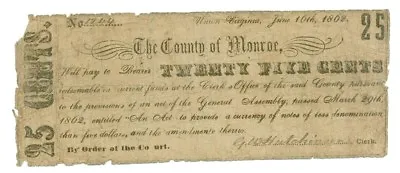 No. 1244
Union Virginia, June 10th, 1862.
25
The County of Monroe,
Will pay to Bearer TWENTY FIVE CENTS
redeemable in current funds at the Clerk's Office of the said County pursuant
to the provisions of an act of the General Assembly, passed March 29th,
1862, entitled "An Act to provide a currency of notes of less denomination
than five dollars, and the amendments thereto.
By Order of the Court.
Clerk.
25 CENTS.